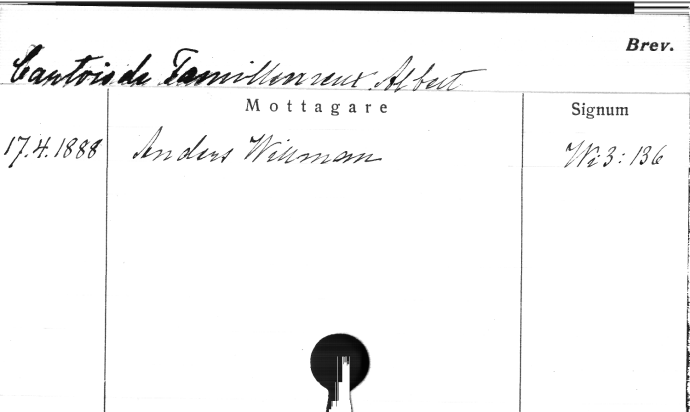 Brev.
Cantois de Famillenreux, Albert
Mottagare
Signum
17.4.1888 Anders Willman Wi3:136